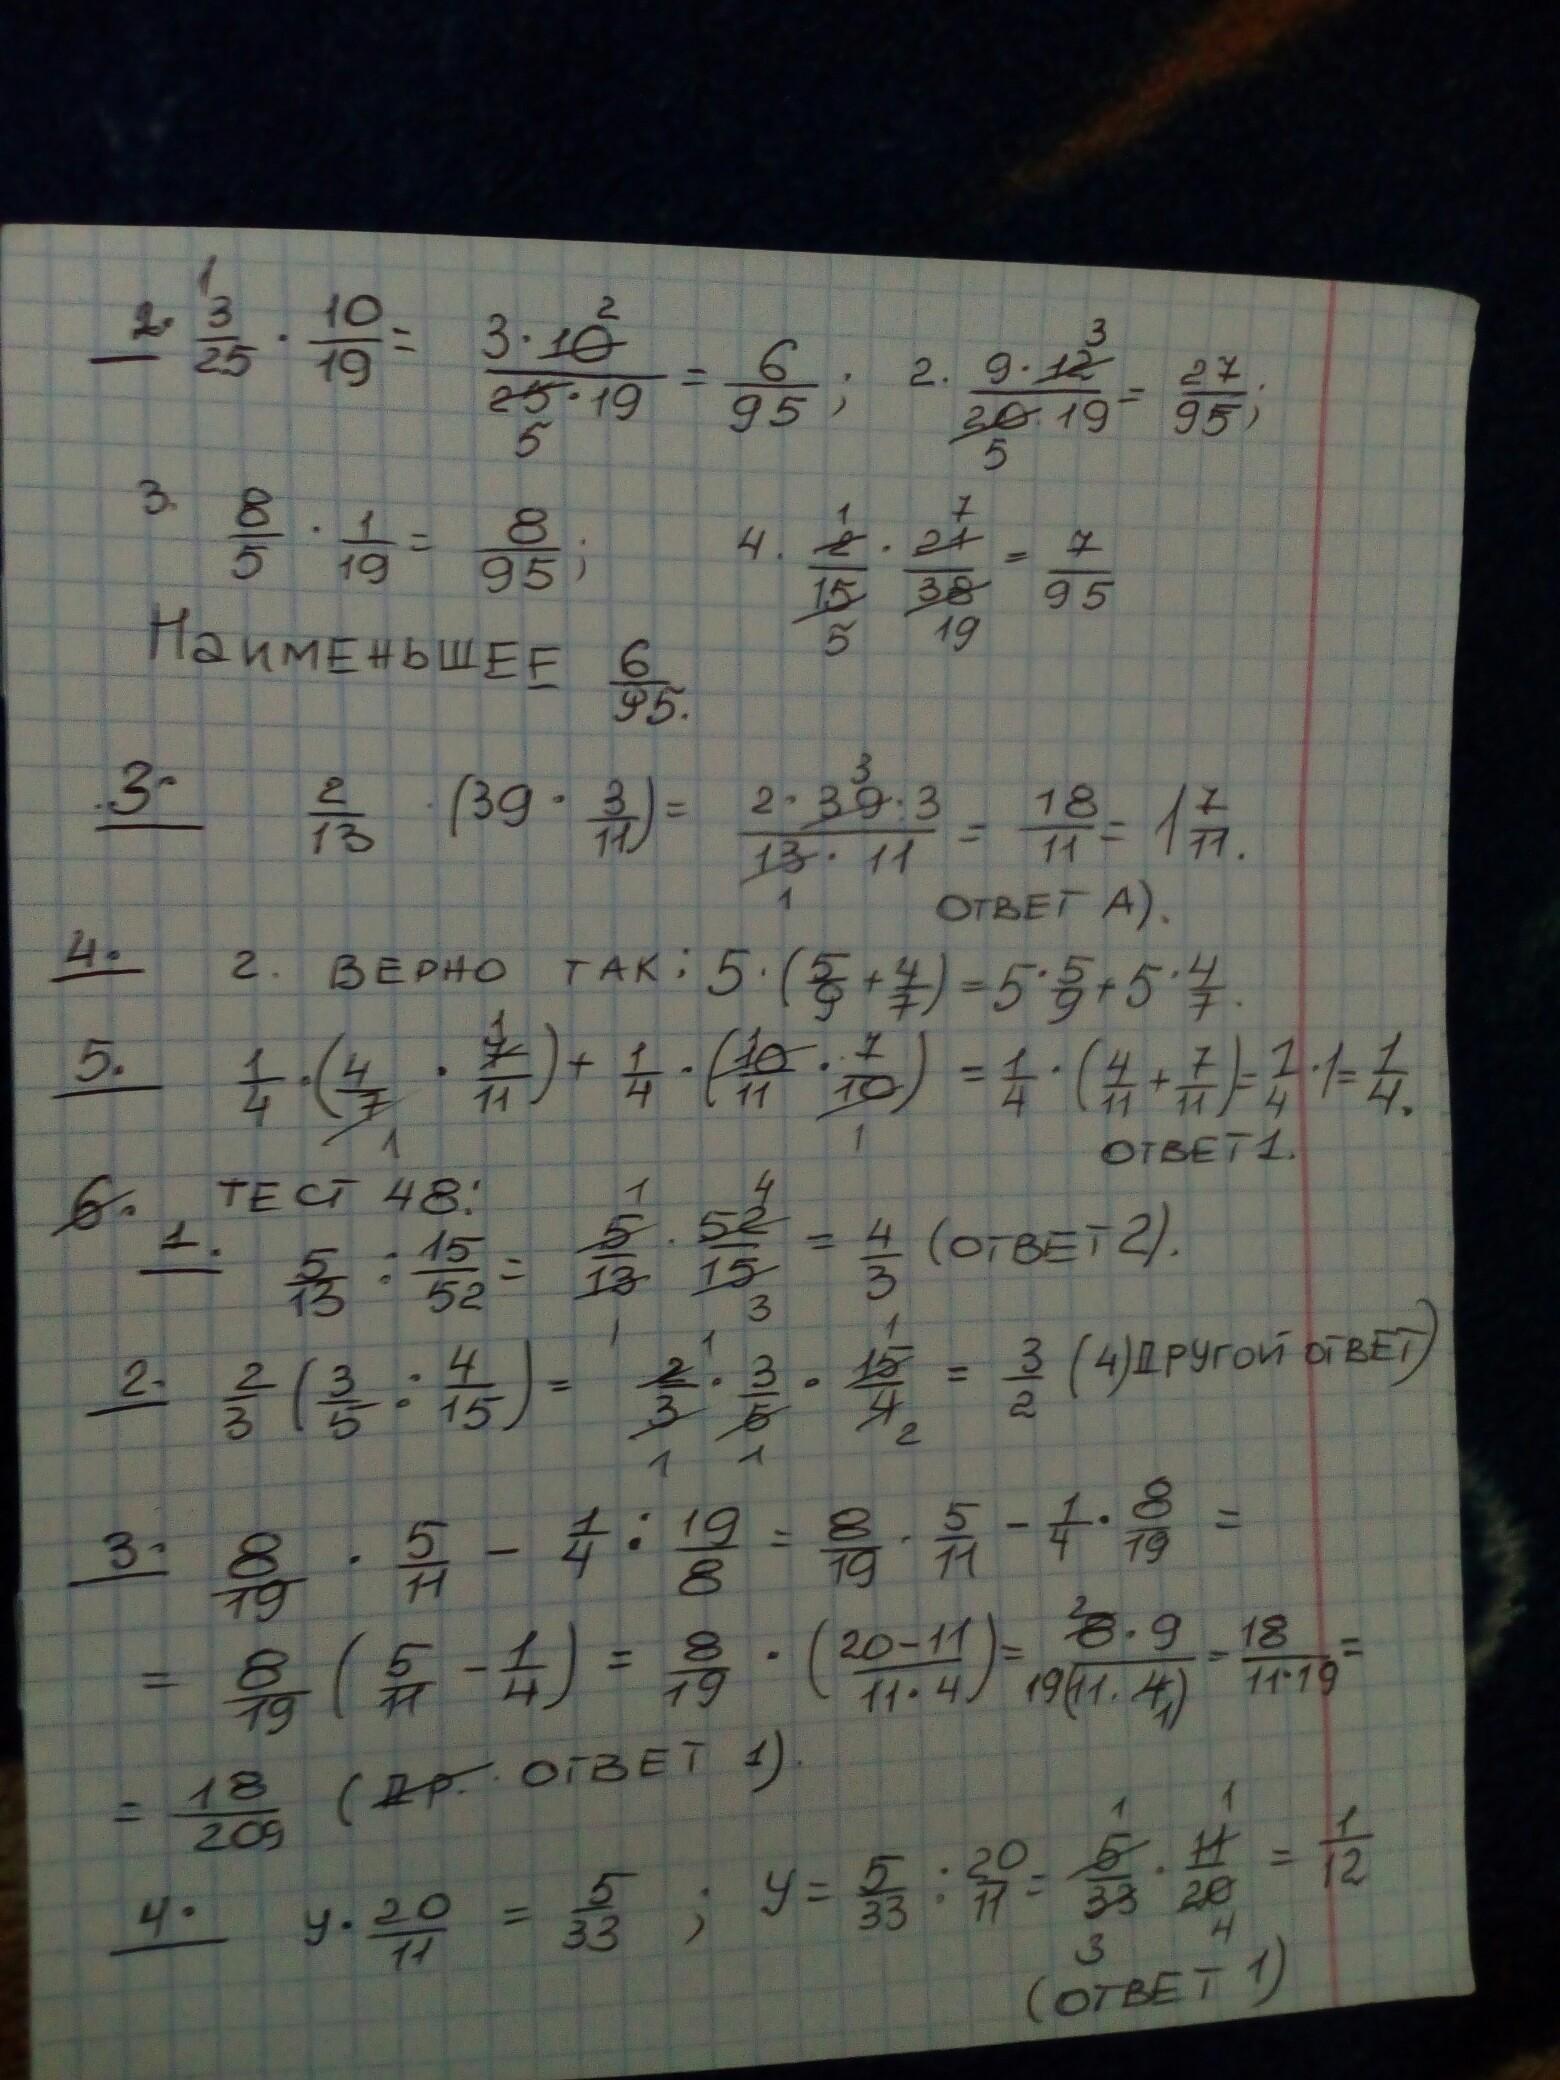 2. 1. 3/25 · 10/19 = 3·10/25·19 = 6/95; 2. 9·12/20·19 = 27/95;
3. 8/5 · 1/19 = 8/95; 4. 2/15 · 21/38 = 7/95
Наименьшее 6/95.
3. 2/13 · (39 · 3/11) = 2·39·3/13·11 = 18/11 = 1 7/11.
ответ А).
4. 2. верно так: 5·(5/9 + 4/7) = 5·5/9 + 5·4/7.
5. 1/4·(4/7 · 7/11) + 1/4·(10/11 · 7/10) = 1/4·(4/11 + 7/11) = 1/4·1 = 1/4.
ответ 1.
6. тест 48:
1. 5/13 : 15/52 = 5/13 · 52/15 = 4/3 (ответ 2).
2. 2/3 (3/5 : 4/15) = 2/3 · 3/5 · 15/4 = 3/2 (4) другой ответ)
3. 8/19 · 5/11 – 1/4 : 19/8 = 8/19 · 5/11 – 1/4 · 8/19 =
= 8/19 (5/11 – 1/4) = 8/19 · (20–11/11·4) = 8·9/19(11·4) = 18/11·19 =
= 18/209 (др. ответ 1).
4. y · 20/11 = 5/33 ; y = 5/33 : 20/11 = 5/33 · 11/20 = 1/12
(ответ 1)